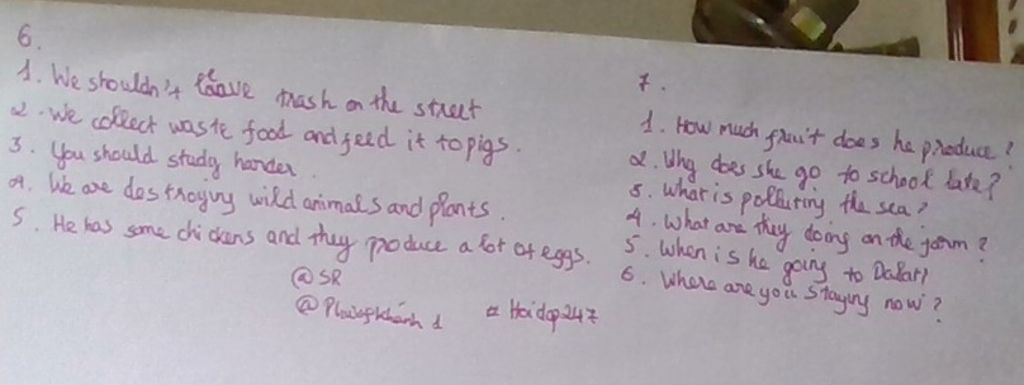 6.
1. We shouldn't leave trash on the street
2. We collect waste food and feed it to pigs.
3. You should study harder.
4. We are destroying wild animals and plants.
5. He has some chickens and they produce a lot of eggs.
@ SR
# Hoidap247
7.
1. How much fruit does he produce?
2. Why does she go to school late?
3. What is polluting the sea?
4. What are they doing on the farm?
5. When is he going to Dalat?
6. Where are you staying now?